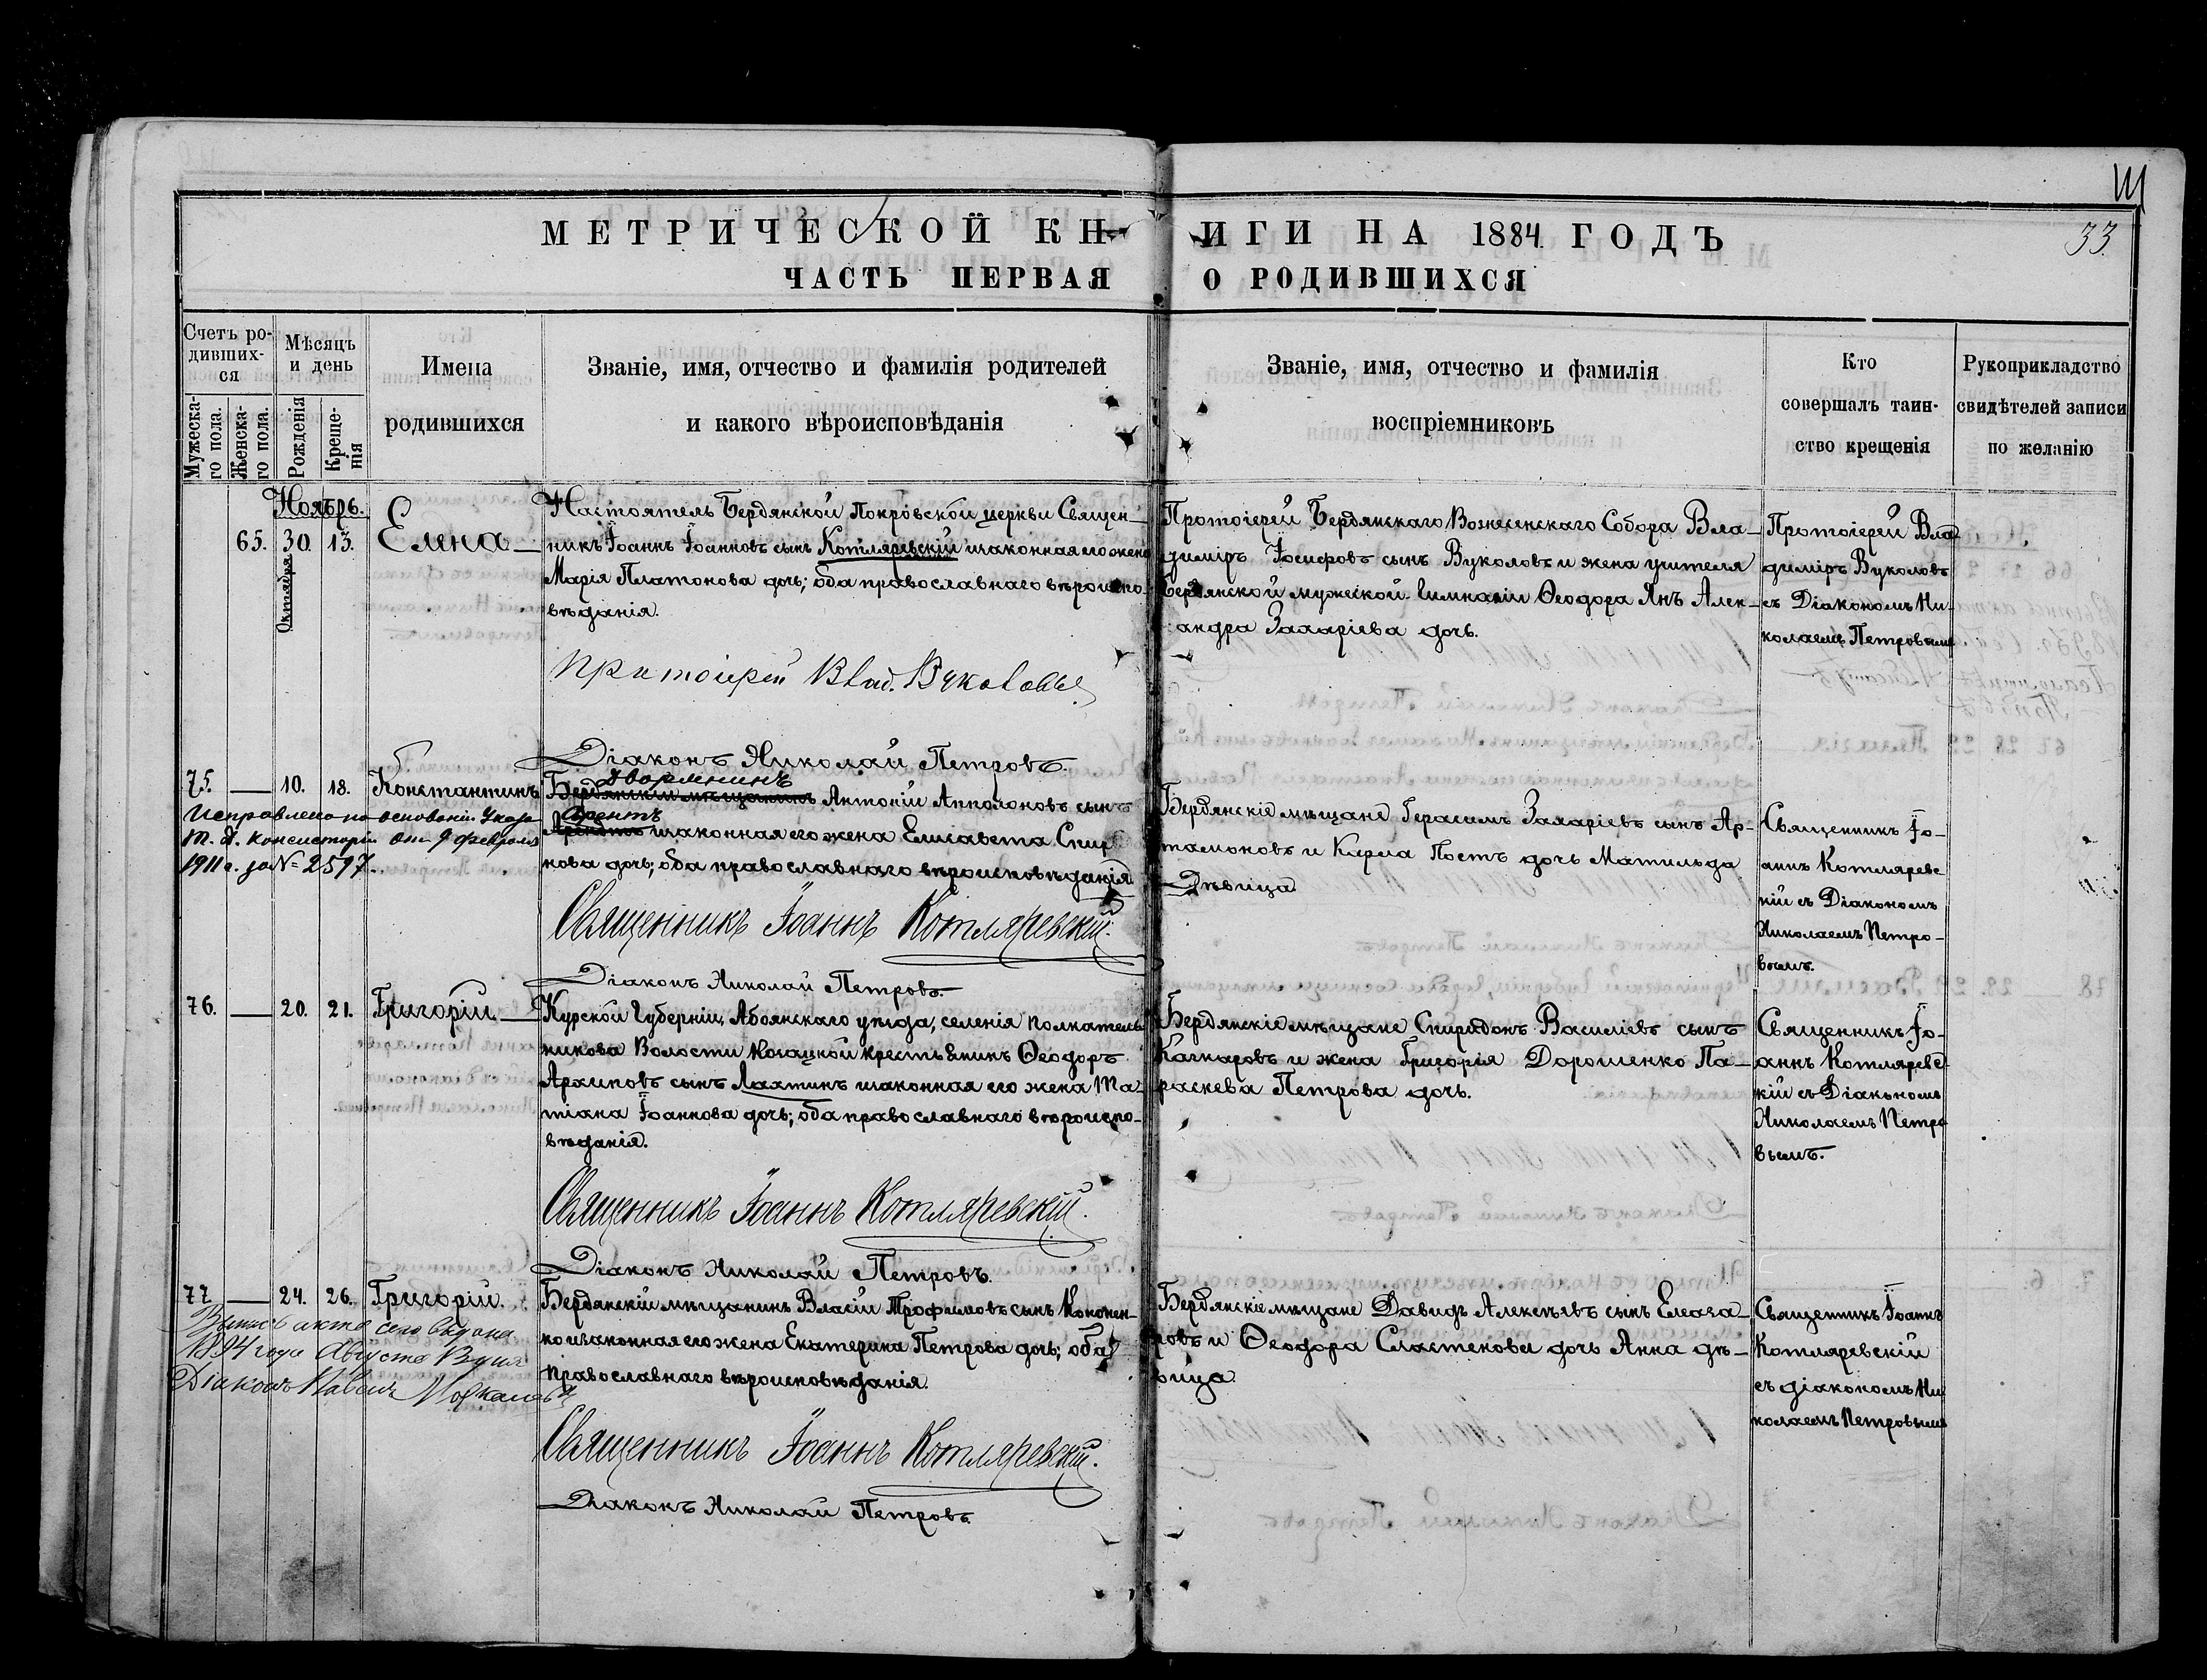 Ш
МЕТРИЧЕСКОЙ КНИГИ НА 1884 ГОДЪ
33.
ЧАСТЬ ПЕРВАЯ О РОДИВШИХСЯ
Счетъ родившихся
Мужескаго пола.
Женскаго пола.
Мѣсяцъ и день
Рожденія
Крещенія
Имена
родившихся
Званіе, имя, отчество и фамилія родителей
и какого вѣроисповѣданія
Званіе, имя, отчество и фамилія
воспріемниковъ
Кто
совершалъ таин-
ство крещенія
Рукоприкладство
свидѣтелей записи
по желанію
Ноябрь.
65. 30. 13. Елена
Октября
Настоятель Бердянской Покровской церкви Священ-
никъ Іоаннъ Іоанновъ сынъ Котляревскій и законная его жена
Марія Платонова дочь; оба православнаго вѣроиспо-
вѣданія.
Протоіерей Влад. Вуколовъ
Діаконъ Николай Петровъ.
Протоіерей Бердянскаго Вознесенскаго Собора Вла-
димиръ Іосифовъ сынъ Вуколовъ и жена учителя
Бердянской мужеской Гимназіи Ѳеодора Янъ Алек-
сандра Захаріева дочь.
Протоіерей Вла-
димиръ Вуколовъ
съ Діакономъ Ни-
колаемъ Петровымъ
75. — 10. 18. Константинъ
Исправлено на основаніи Указа
Т. Д. Консисторіи отъ 9 февраля
1911 г. за № 2597.
дворянинъ
Бердянскій мѣщанинъ Антоній Апполоновъ сынъ
Арентъ
Арендтъ и законная его жена Елисавета Спири-
нова дочь; оба православнаго вѣроисповѣданія.
Священникъ Іоаннъ Котляревскій.
Діаконъ Николай Петровъ.
Бердянскіе мѣщане Герасимъ Захаріевъ сынъ Ар-
тамоновъ и Карла Постъ дочь Матильда
Дѣвица
Священникъ Іо-
аннъ Котляревс
кій съ Діакономъ
Николаемъ Петро-
вымъ.
76. — 20. 21. Григорій.
Курской Губерніи, Абоянскаго уѣзда, селенія Полкатель
никова Волости Косацкой крестьянинъ Ѳеодоръ
Архиповъ сынъ Лахтинъ и законная его жена Та-
тіана Іоаннова дочь; оба православнаго вѣроиспо-
вѣданія.
Священникъ Іоаннъ Котляревскій.
Діаконъ Николай Петровъ.
Бердянскіе мѣщане Спиридонъ Василіевъ сынъ
Качкаровъ и жена Григорія Дорошенко Па-
раскева Петрова дочь.
Священникъ Іо-
аннъ Котляревс-
кій съ Діакономъ
Николаемъ Петро
вымъ.
77 — 24. 26. Григорій.
Выпись акта сего выдана
1894 года Августа
Діаконъ Павелъ
Бердянскій мѣщанинъ Власій Трофимовъ сынъ Кононен-
ко и законная его жена Екатерина Петрова дочь; оба
православнаго вѣроисповѣданія.
Священникъ Іоаннъ Котляревскій.
Діаконъ Николай Петровъ.
Бердянскіе мѣщане Давидъ Алексѣевъ сынъ Елеаза-
ровъ и Ѳеодора Сластенова дочь Анна дѣ-
вица
Священникъ Іоаннъ
Котляревскій
съ діакономъ Ни
колаемъ Петровымъ